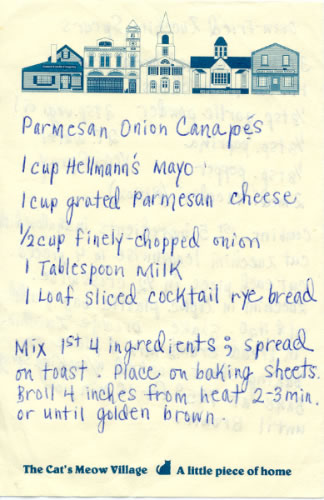 Parmesan Onion Canapés
1 cup Hellmann's Mayo
1 cup grated Parmesan cheese
1/2 cup finely-chopped onion
1 Tablespoon Milk
1 Loaf sliced cocktail rye bread
Mix 1st 4 ingredients & spread
on toast. Place on baking sheets.
Broil 4 inches from heat 2-3 min.
or until golden brown.
The Cat's Meow Village A little piece of home